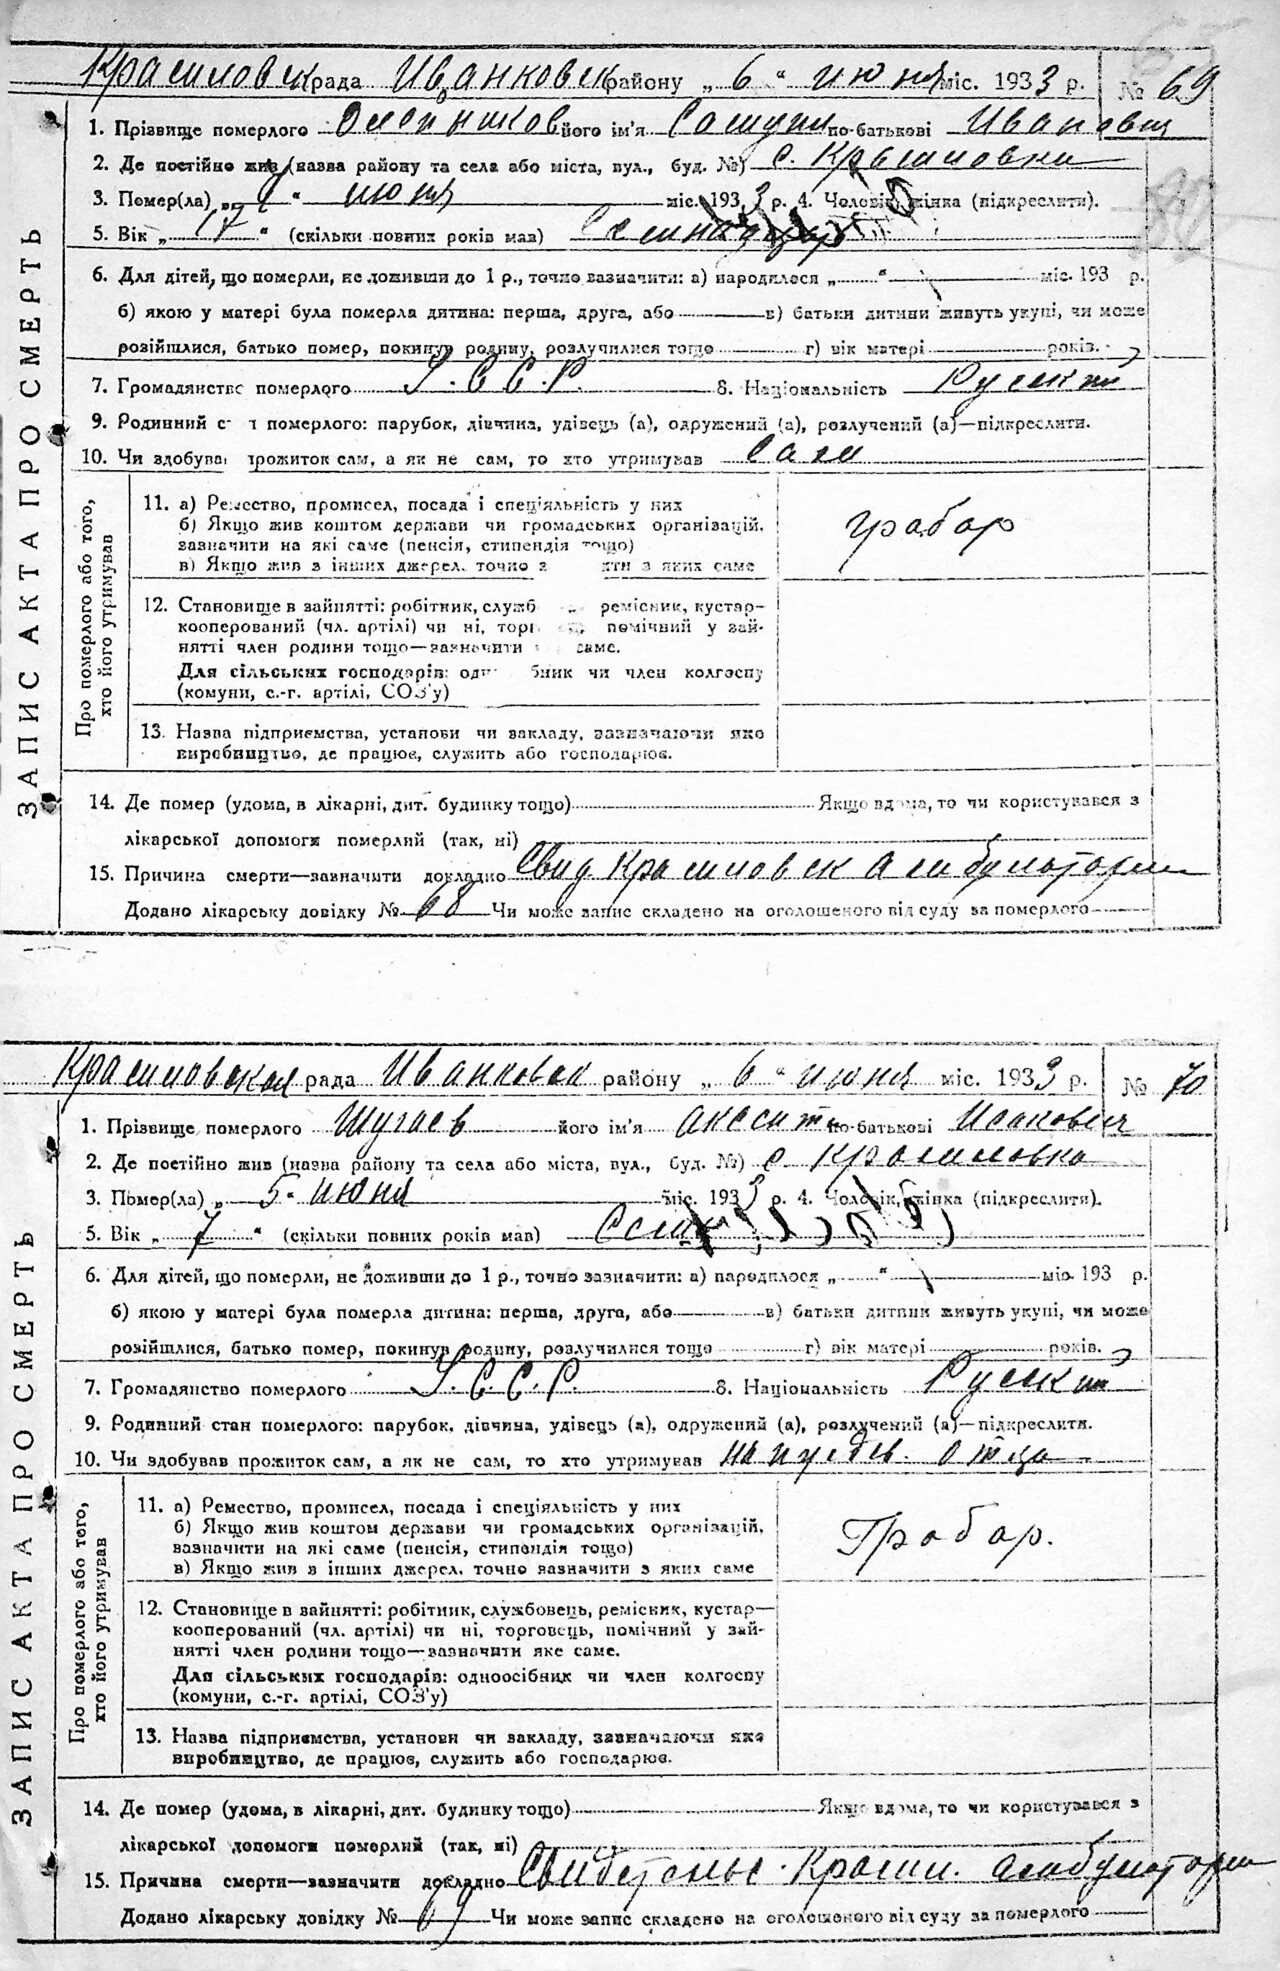 Красиловск рада Иванковск району „ 6 “ июня міс. 1933 р. № 69
1. Прізвище померлого його ім'я по-батькові Иванович
2. Де постійно жив (назва району та села або міста, вул., буд. №) с. Красиловка
3. Помер(ла) „ “ июня міс. 1933 р. 4. Чоловік, жінка (підкреслити).
5. Вік „ 17 “ (скільки повних років мав)
6. Для дітей, що померли, не доживши до 1 р., точно зазначити: а) народилося „ “ міс. 193 р.
б) якою у матері була померла дитина: перша, друга, або в) батьки дитини живуть укупі, чи може
розійшлися, батько помер, покинув родину, розлучилися тощо г) вік матері років.
7. Громадянство померлого У.С.С.Р. 8. Національність Руський
9. Родинний с т померлого: парубок, дівчина, удівець (а), одружений (а), розлучений (а)—підкреслити.
10. Чи здобува прожиток сам, а як не сам, то хто утримував Сам
Про померлого або того, хто його утримував
11. а) Ремество, промисел, посада і спеціяльність у них
б) Якщо жив коштом держави чи громадських організацій,
зазначити на які саме (пенсія, стипендія тощо)
в) Якщо жив з інших джерел, точно з яти з яких саме
грабар
12. Становище в зайнятті: робітник, служб ремісник, кустар-
кооперований (чл. артілі) чи ні, торг помічний у зай-
нятті член родини тощо—зазначити саме.
Для сільських господарів: одн бник чи член колгоспу
(комуни, с.-г. артілі, СОЗ'у)
13. Назва підприємства, установи чи закладу, зазначаючи яке
виробництво, де працює, служить або господарює.
14. Де помер (удома, в лікарні, дит. будинку тощо) Якщо вдома, то чи користувався з
лікарської допомоги померлий (так, ні)
15. Причина смерти—зазначити докладно Свид Красиловск амбулатории
Додано лікарську довідку № 68 Чи може запис складено на оголошеного від суду за померлого
ЗАПИС АКТА ПРО СМЕРТЬ
Красиловская рада Иванковск району „ 6 “ июня міс. 1933 р. № 70
1. Прізвище померлого Шугаев його ім'я по-батькові Исакович
2. Де постійно жив (назва району та села або міста, вул., буд. №) с. Красиловка
3. Помер(ла) „ 5. июня міс. 1933 р. 4. Чоловік, жінка (підкреслити).
5. Вік „ 7 “ (скільки повних років мав)
6. Для дітей, що померли, не доживши до 1 р., точно зазначити: а) народилося „ “ міс. 193 р.
б) якою у матері була померла дитина: перша, друга, або в) батьки дитини живуть укупі, чи може
розійшлися, батько помер, покинув родину, розлучилися тощо г) вік матері років.
7. Громадянство померлого У.С.С.Р. 8. Національність Руський
9. Родинний стан померлого: парубок, дівчина, удівець (а), одружений (а), розлучений (а)—підкреслити.
10. Чи здобував прожиток сам, а як не сам, то хто утримував отца
Про померлого або того, хто його утримував
11. а) Ремество, промисел, посада і спеціяльність у них
б) Якщо жив коштом держави чи громадських організацій,
зазначити на які саме (пенсія, стипендія тощо)
в) Якщо жив з інших джерел, точно зазначити з яких саме
Грабар.
12. Становище в зайнятті: робітник, службовець, ремісник, кустар—
кооперований (чл. артілі) чи ні, торговець, помічний у зай-
нятті член родини тощо—зазначити яке саме.
Для сільських господарів: одноосібник чи член колгоспу
(комуни, с.-г. артілі, СОЗ'у)
13. Назва підприємства, установи чи закладу, зазначаючи яке
виробництво, де працює, служить або господарює.
14. Де помер (удома, в лікарні, дит. будинку тощо) Якщо вдома, то чи користувався з
лікарської допомоги померлий (так, ні)
15. Причина смерти—зазначити докладно Красил. амбулатории
Додано лікарську довідку № 69 Чи може запис складено на оголошеного від суду за померлого
ЗАПИС АКТА ПРО СМЕРТЬ